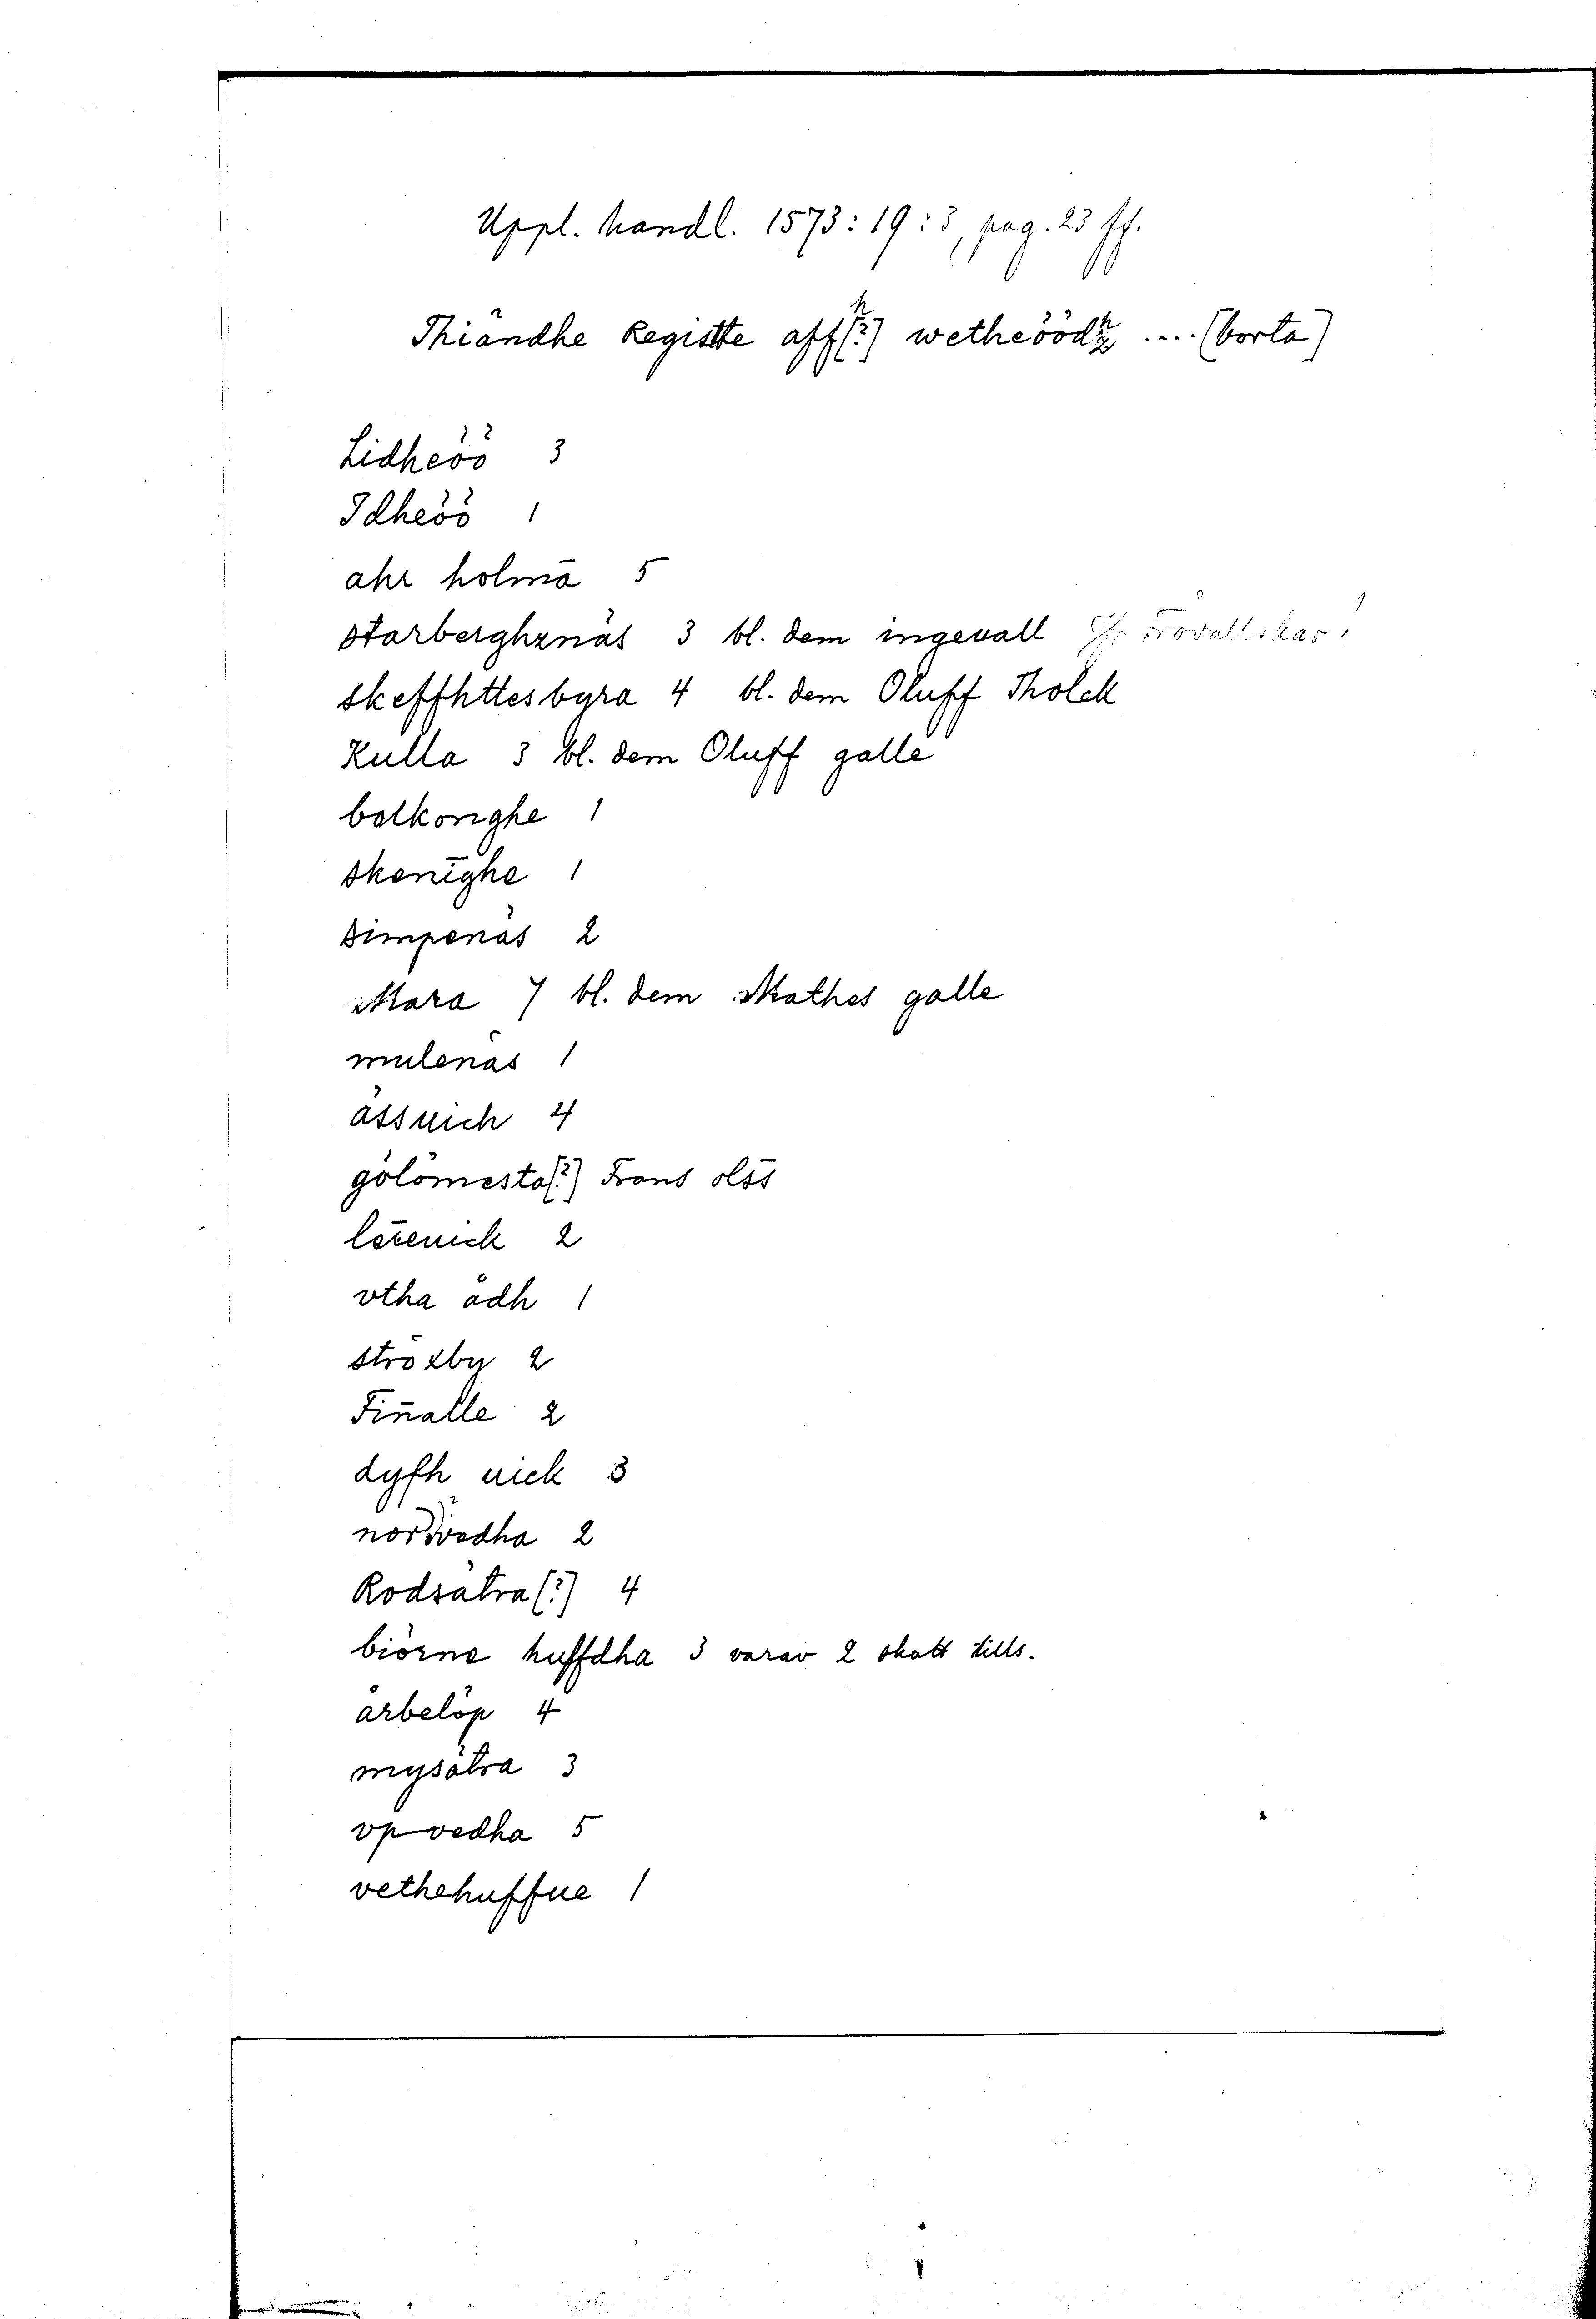 Uppl. handl. 1573:19:3, pag. 23 ff.
Thiändhe Registte aff[?] wetheöödz .... (borta)
Lidheöö 3
Idheöö 1
ahr holmā 5
starberghznäs 3 bl. dem ingevall Jfr
skeffhttesbyra 4 bl. dem Oluff Tholck
Kulla 3 bl. dem Oluff galle
balkonghe 1
skenīghe 1
simpenäs 2
Mara 7 bl. dem Mathes galle
mulenäs 1
ässuich 4
gölömesta[?] Frans olss̄
lēreuick 2
vtha ådh 1
ströxby 2
Fin̄alle 2
dyfh uick 3
nordvedha 2
Rodsätra [?] 4
biörne huffdha 3 varav 2 skatt tills.
årbelöp 4
mysätra 3
vp vedha 5
vethehuffue 1